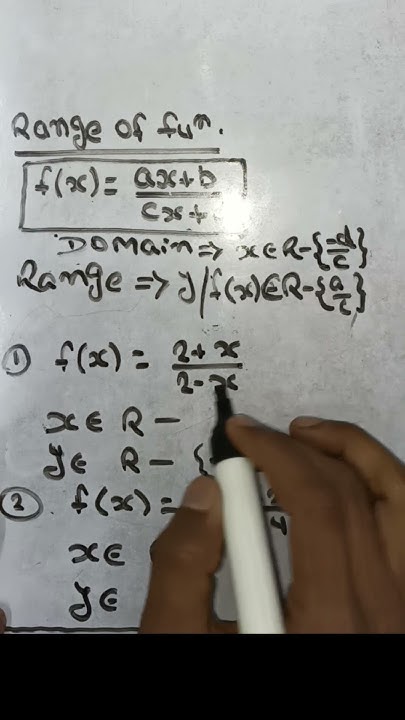 Range of fuⁿ.
f(x) = ax+b / cx+
Domain => x∈R-{-d/c}
Range => y/f(x)∈R-{a/c}
① f(x) = 2+x / 2-x
x∈ R -
y∈ R - {
② f(x) =
x∈
y∈